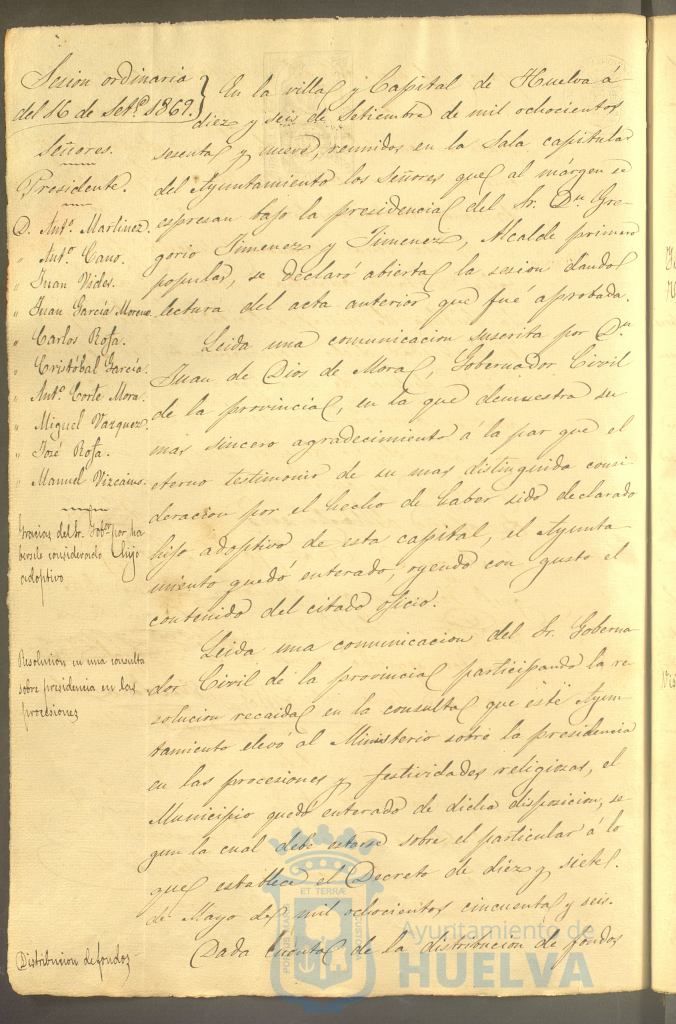 Sesion ordinaria
del 16 de Setre. 1869.
Señores.
Presidente.
D. Anto. Martinez.
" Anto. Cano.
" Juan Vides.
" Juan García Moreno.
" Carlos Rofa.
" Cristóbal García.
" Anto. Corte Mora.
" Miguel Vazquez.
" José Rofa.
" Manuel Vizcaino.
En la villa y Capital de Huelva á
diez y seis de Setiembre de mil ochocientos
sesenta y nueve, reunidos en la Sala capitular
del Ayuntamiento los Señores que al márgen se
espresan bajo la presidencia del Sr. Dn. Gre-
gorio Jimenez y Jimenez, Alcalde primero
popular, se declaró abierta la sesion dando
lectura del acta anterior que fué aprobada.
Gracias del Sr. Gobor. por ha
bersele considerado hijo
adoptivo
Leida una comunicacion suscrita por Dn.
Juan de Dios de Mora, Gobernador Civil
de la provincia, en la que demuestra su
mas sincero agradecimiento á la par que el
eterno testimonio de su mas distinguida consi-
deracion por el hecho de haber sido declarado
hijo adoptivo de esta capital, el Ayunta-
miento quedó enterado, oyendo con gusto el
contenido del citado oficio.
Resolucion en una consulta
sobre presidencia en las
procesiones
Leida una comunicacion del Sr. Goberna-
dor Civil de la provincia participando la re-
solucion recaida en la consulta que este Ayun-
tamiento elevó al Ministerio sobre la presidencia
en las procesiones y festividades religiosas, el
Municipio quedó enterado de dicha disposicion, se
gun la cual debe estarse sobre el particular á lo
que establece el Decreto de diez y siete
de Mayo de mil ochocientos cincuenta y seis.
Distribucion de fondos
Dada cuenta de la distribucion de fondos
ET TERRÆ
Ayuntamiento de
HUELVA